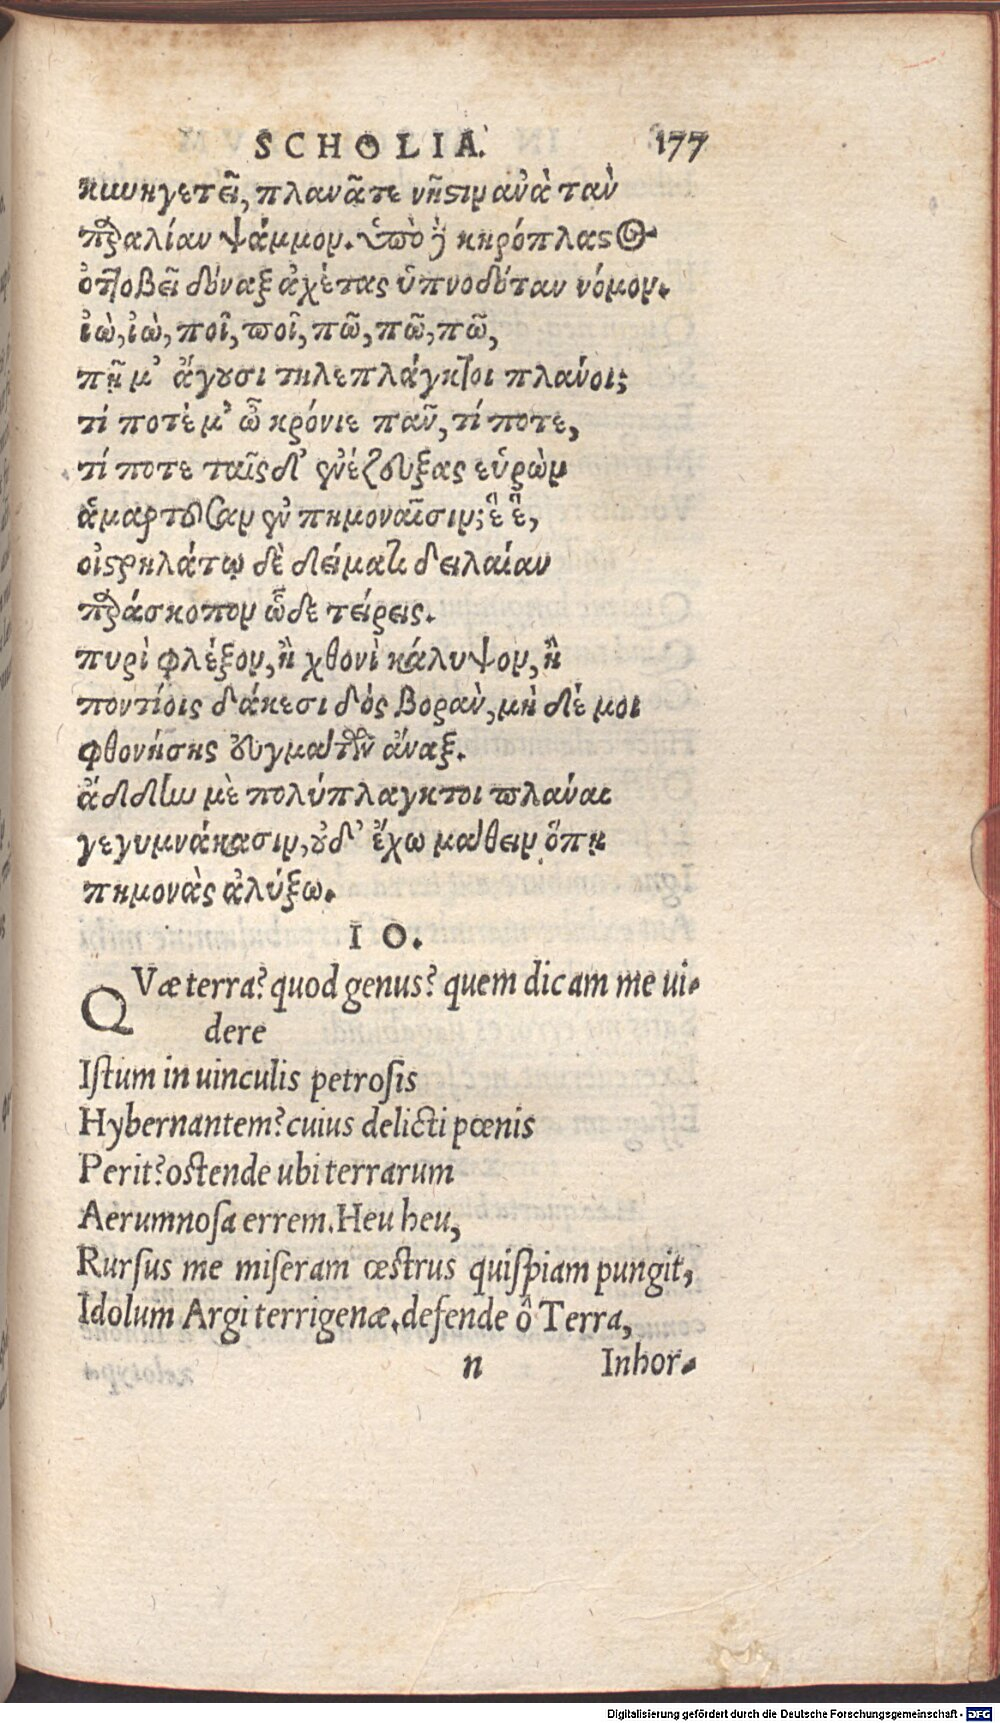 SCHOLIA. 177
κυνηγετεῖ, πλανᾶτε νῆςιν ἀνὰ τὰν
παραλίαν ψάμμον. ὑπὸ δὲ κηρόπλαςος
ὀτοβεῖ δόναξ ἀχέτας ὑπνοδόταν νόμον.
ἰὼ, ἰὼ, ποῖ, ποῖ, πῶ, πῶ, πῶ,
πῆ μ' ἄγουσι τηλεπλάγκτοι πλάνοι;
τί ποτέ μ' ὦ κρόνιε παῖ, τί ποτε,
τί ποτε ταῖς δ' ἐνέζευξας εὑρὼν
ἁμαρτοῦσαν ἐν πημοναῖσιν; ἒ ἒ,
οἰςρηλάτῳ δὲ δείματι δειλαίαν
παράσκοπον ὧδε τείρεις.
πυρὶ φλέξον, ἢ χθονὶ κάλυψον, ἢ
ποντίοις δάκεσι δὸς βορὰν, μὴ δέ μοι
φθονήσης εὐγμάτων ἄναξ.
ἄδδίω μὲ πολύπλαγκτοι πλάναι
γεγυμνάκασιν, οὐδ' ἔχω μαθεῖν ὅπη
πημονὰς ἀλύξω.
IO.
QVæ terra? quod genus? quem dicam me ui-
dere
Istum in uinculis petrosis
Hybernantem? cuius delicti pœnis
Perit? ostende ubi terrarum
Aerumnosa errem. Heu heu,
Rursus me miseram œstrus quispiam pungit,
Idolum Argi terrigenæ. defende ô Terra,
n Inhor-
Digitalisierung gefördert durch die Deutsche Forschungsgemeinschaft - DFG